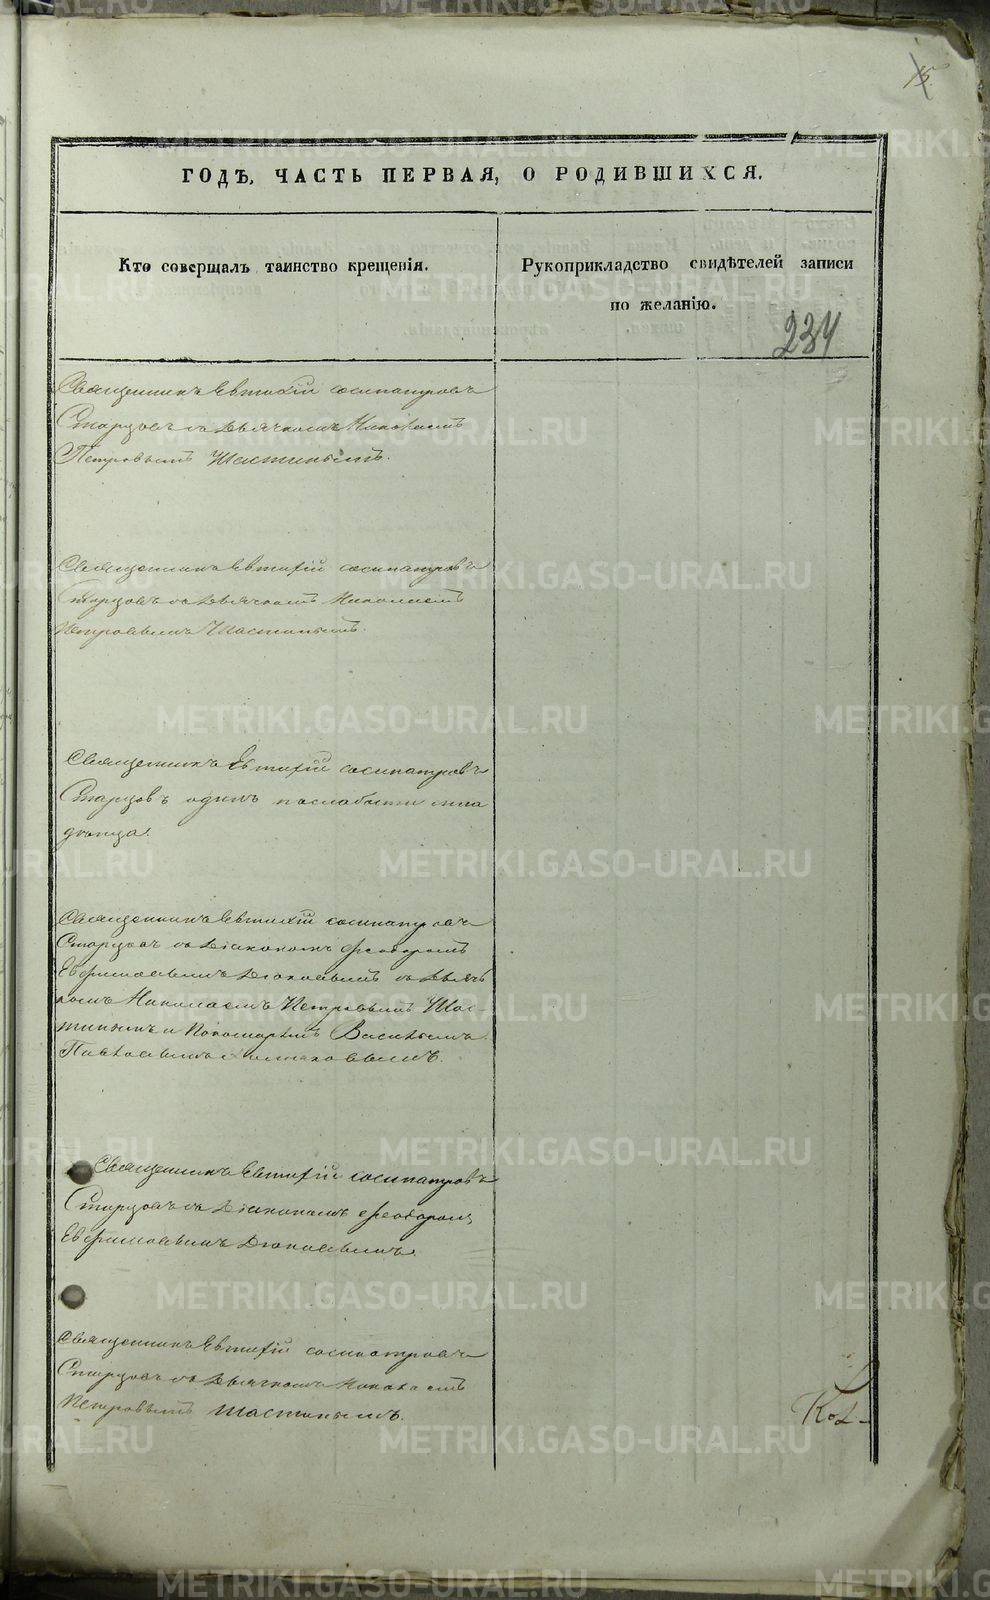 15
ГОДѢ, ЧАСТЬ ПЕРВАЯ, О РОДИВШИХСЯ.
Кто совершалъ таинство крещенія.
Рукоприкладство свидѣтелей записи
по желанію.
234
Священникъ Евтихій Сосипатровъ
Старцовъ съ Дьячкомъ Николаемъ
Петровымъ Шастинымъ.
Священникъ Евтихій Сосипатровъ
Старцовъ съ Дьячкомъ Николаемъ
Петровымъ Шастинымъ.
Священникъ Евтихій Сосипатровъ
Старцовъ одинъ по слабости мла
денца.
Священникъ Евтихій Сосипатровъ
Старцовъ съ Діакономъ Феодоромъ
Евфимовымъ Дюковымъ съ Дьяч
комъ Николаемъ Петровымъ Шас-
тинымъ и Пономаремъ Василіемъ
Павловымъ
Священникъ Евтихій Сосипатровъ
Старцовъ съ Діакономъ Феодоромъ
Евфимовымъ Дюковымъ.
Священникъ Евтихій Сосипатровъ
Старцовъ съ Дьячкомъ Николаемъ
Петровымъ Шастинымъ.
METRIKI.GASO-URAL.RU